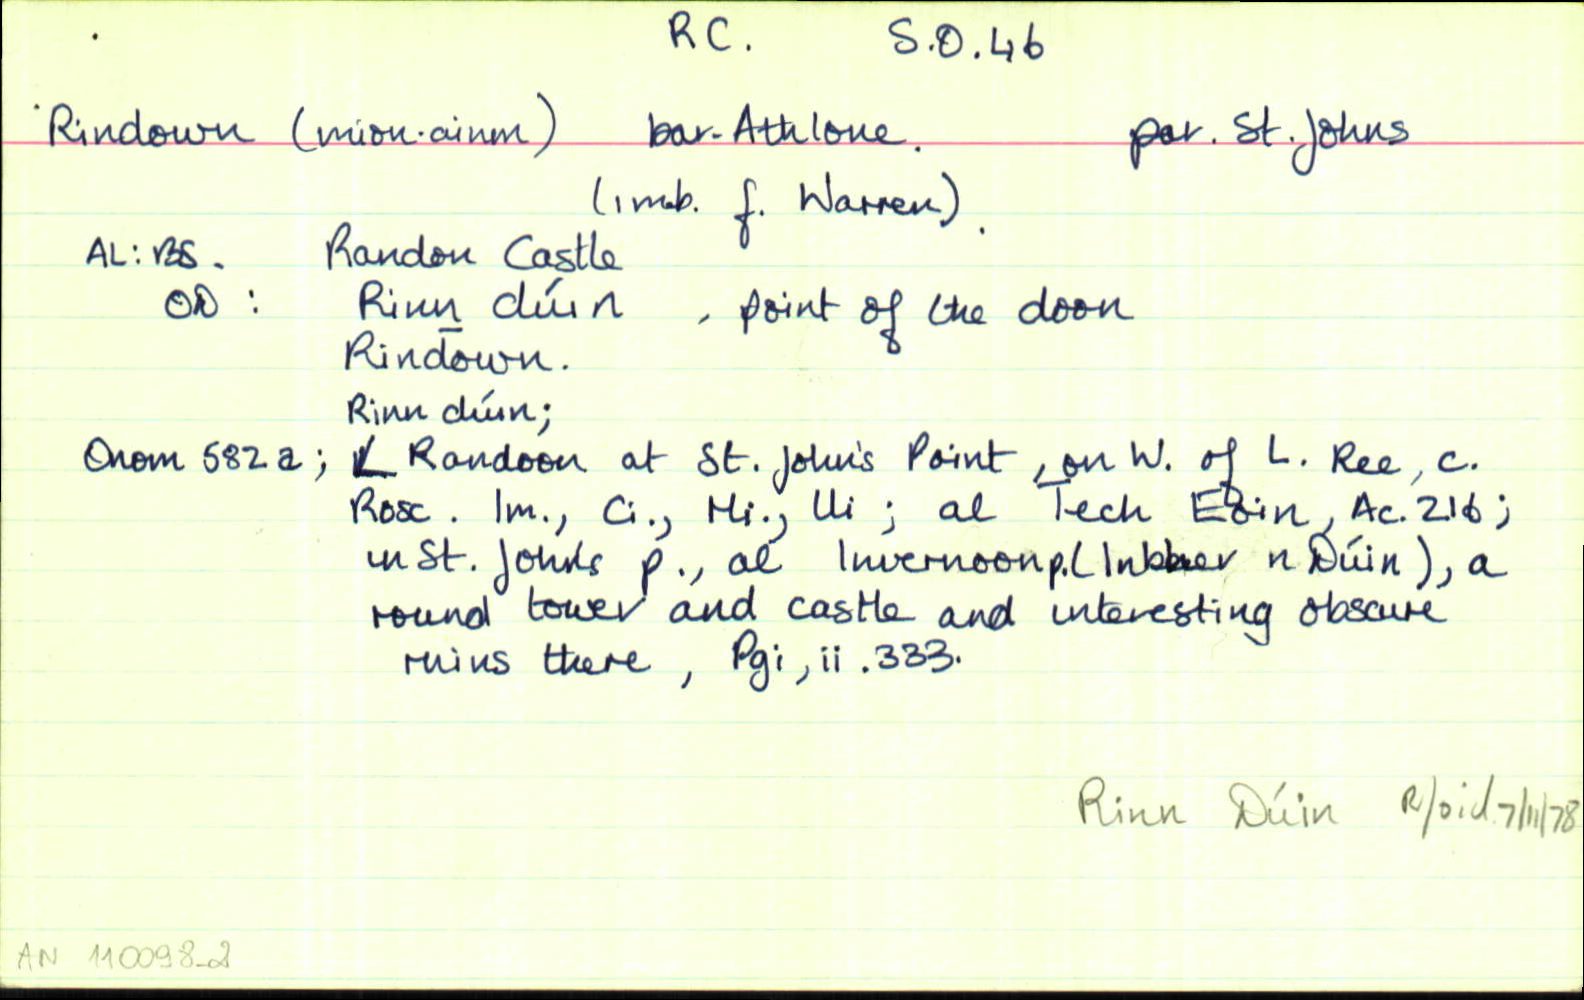 RC. S.O.46
Rindown (mion-ainm) bar. Athlone. par. St. Johns
(imb. f. Warren).
AL: BS. Randon Castle
OD: Rinn dúin, point of the doon
Rindown.
Rinn dúin;
Onom 582 a; Randoon at St. John's Point, on W. of L. Ree, c.
Rosc. Im., Ci., Mi., Ui; al Tech Eoin, Ac. 216;
in St. John's p., al Invernoon p. (Inbher n Dúin), a
round tower and castle and interesting obscure
ruins there, Pgi, ii. 333.
Rinn Dúin R/oid 7/11/78
AN 110098-2